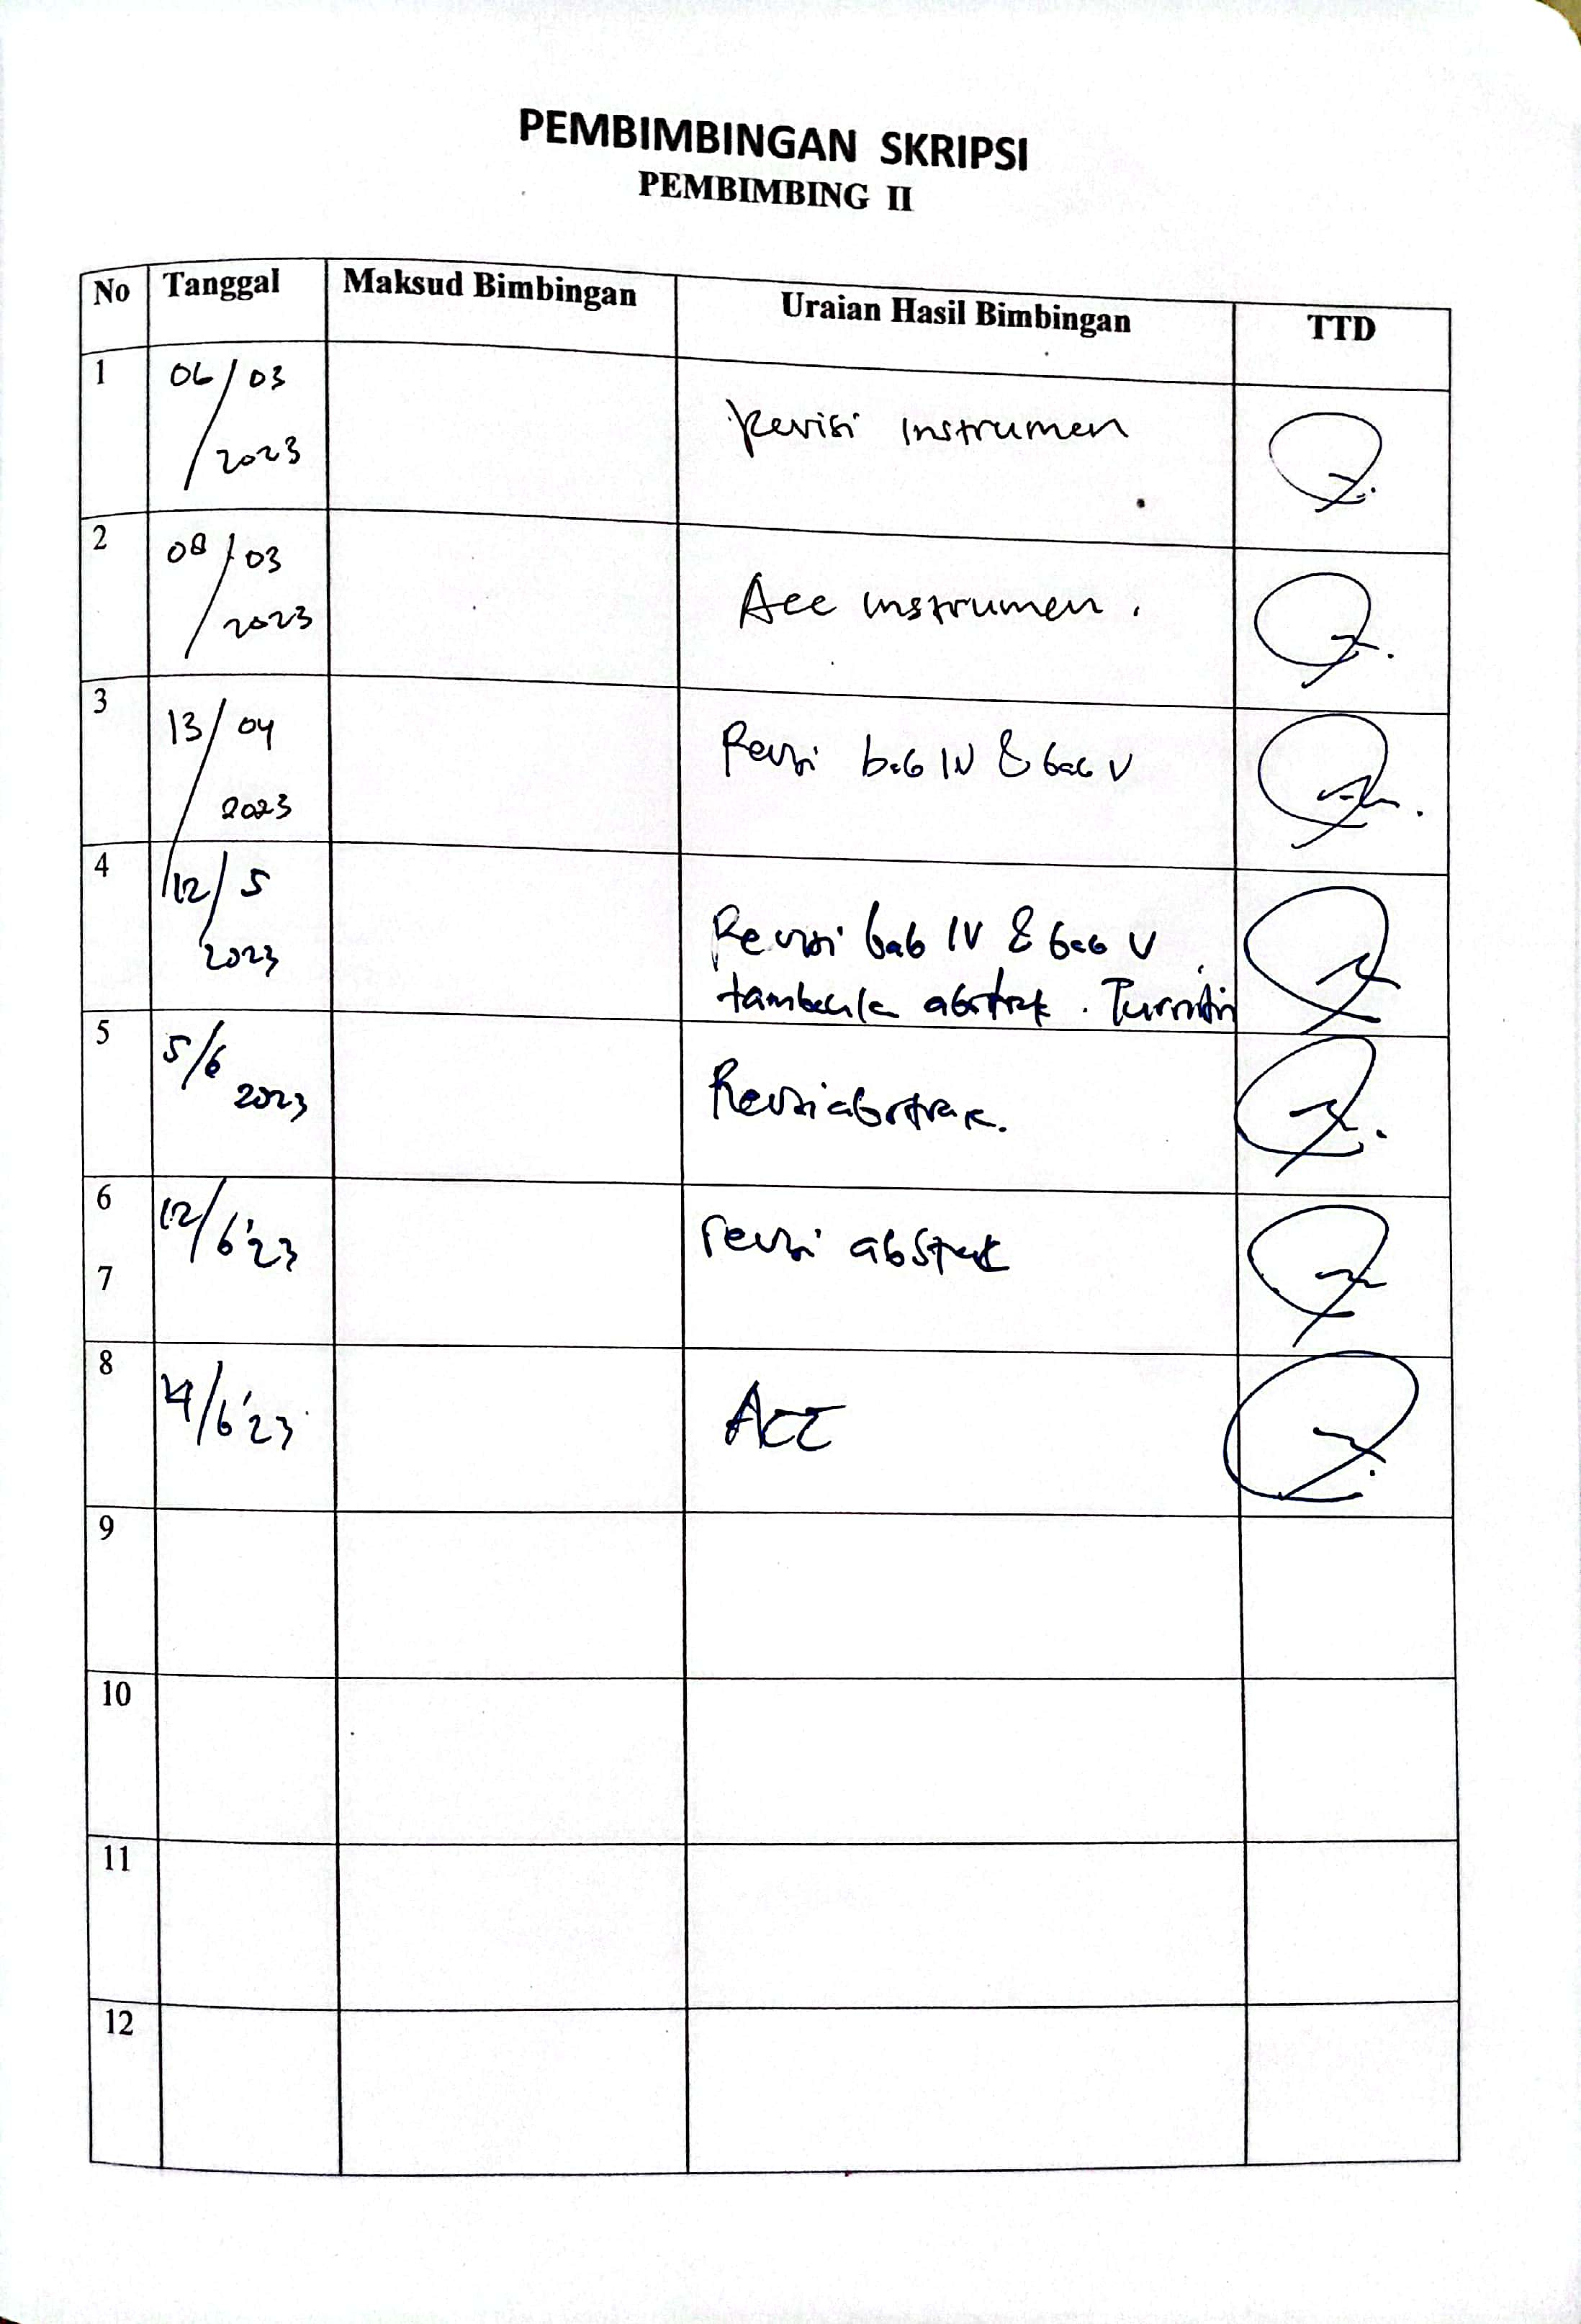 PEMBIMBINGAN SKRIPSI
PEMBIMBING II
No Tanggal Maksud Bimbingan Uraian Hasil Bimbingan TTD
1 06/03/2023 Revisi Instrumen
2 08/03/2023 Acc instrumen.
3 13/04/2023 Revisi bab IV & bab V
4 12/5/2023 Revisi bab IV & bab V,
abstrak. Turnitin
5 5/6 2023 Revisi abstrak.
6 12/6'23 revisi abstrak
7
8 14/6'23 ACC
9
10
11
12